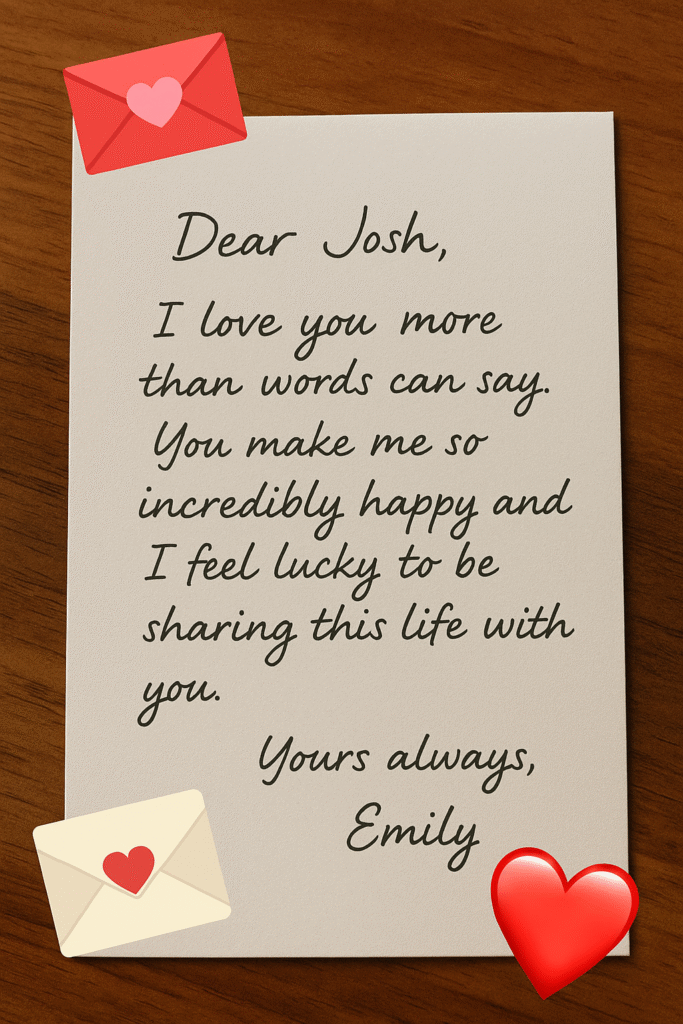 Dear Josh,
I love you more
than words can say.
You make me so
incredibly happy and
I feel lucky to be
sharing this life with
you.
Yours always,
Emily